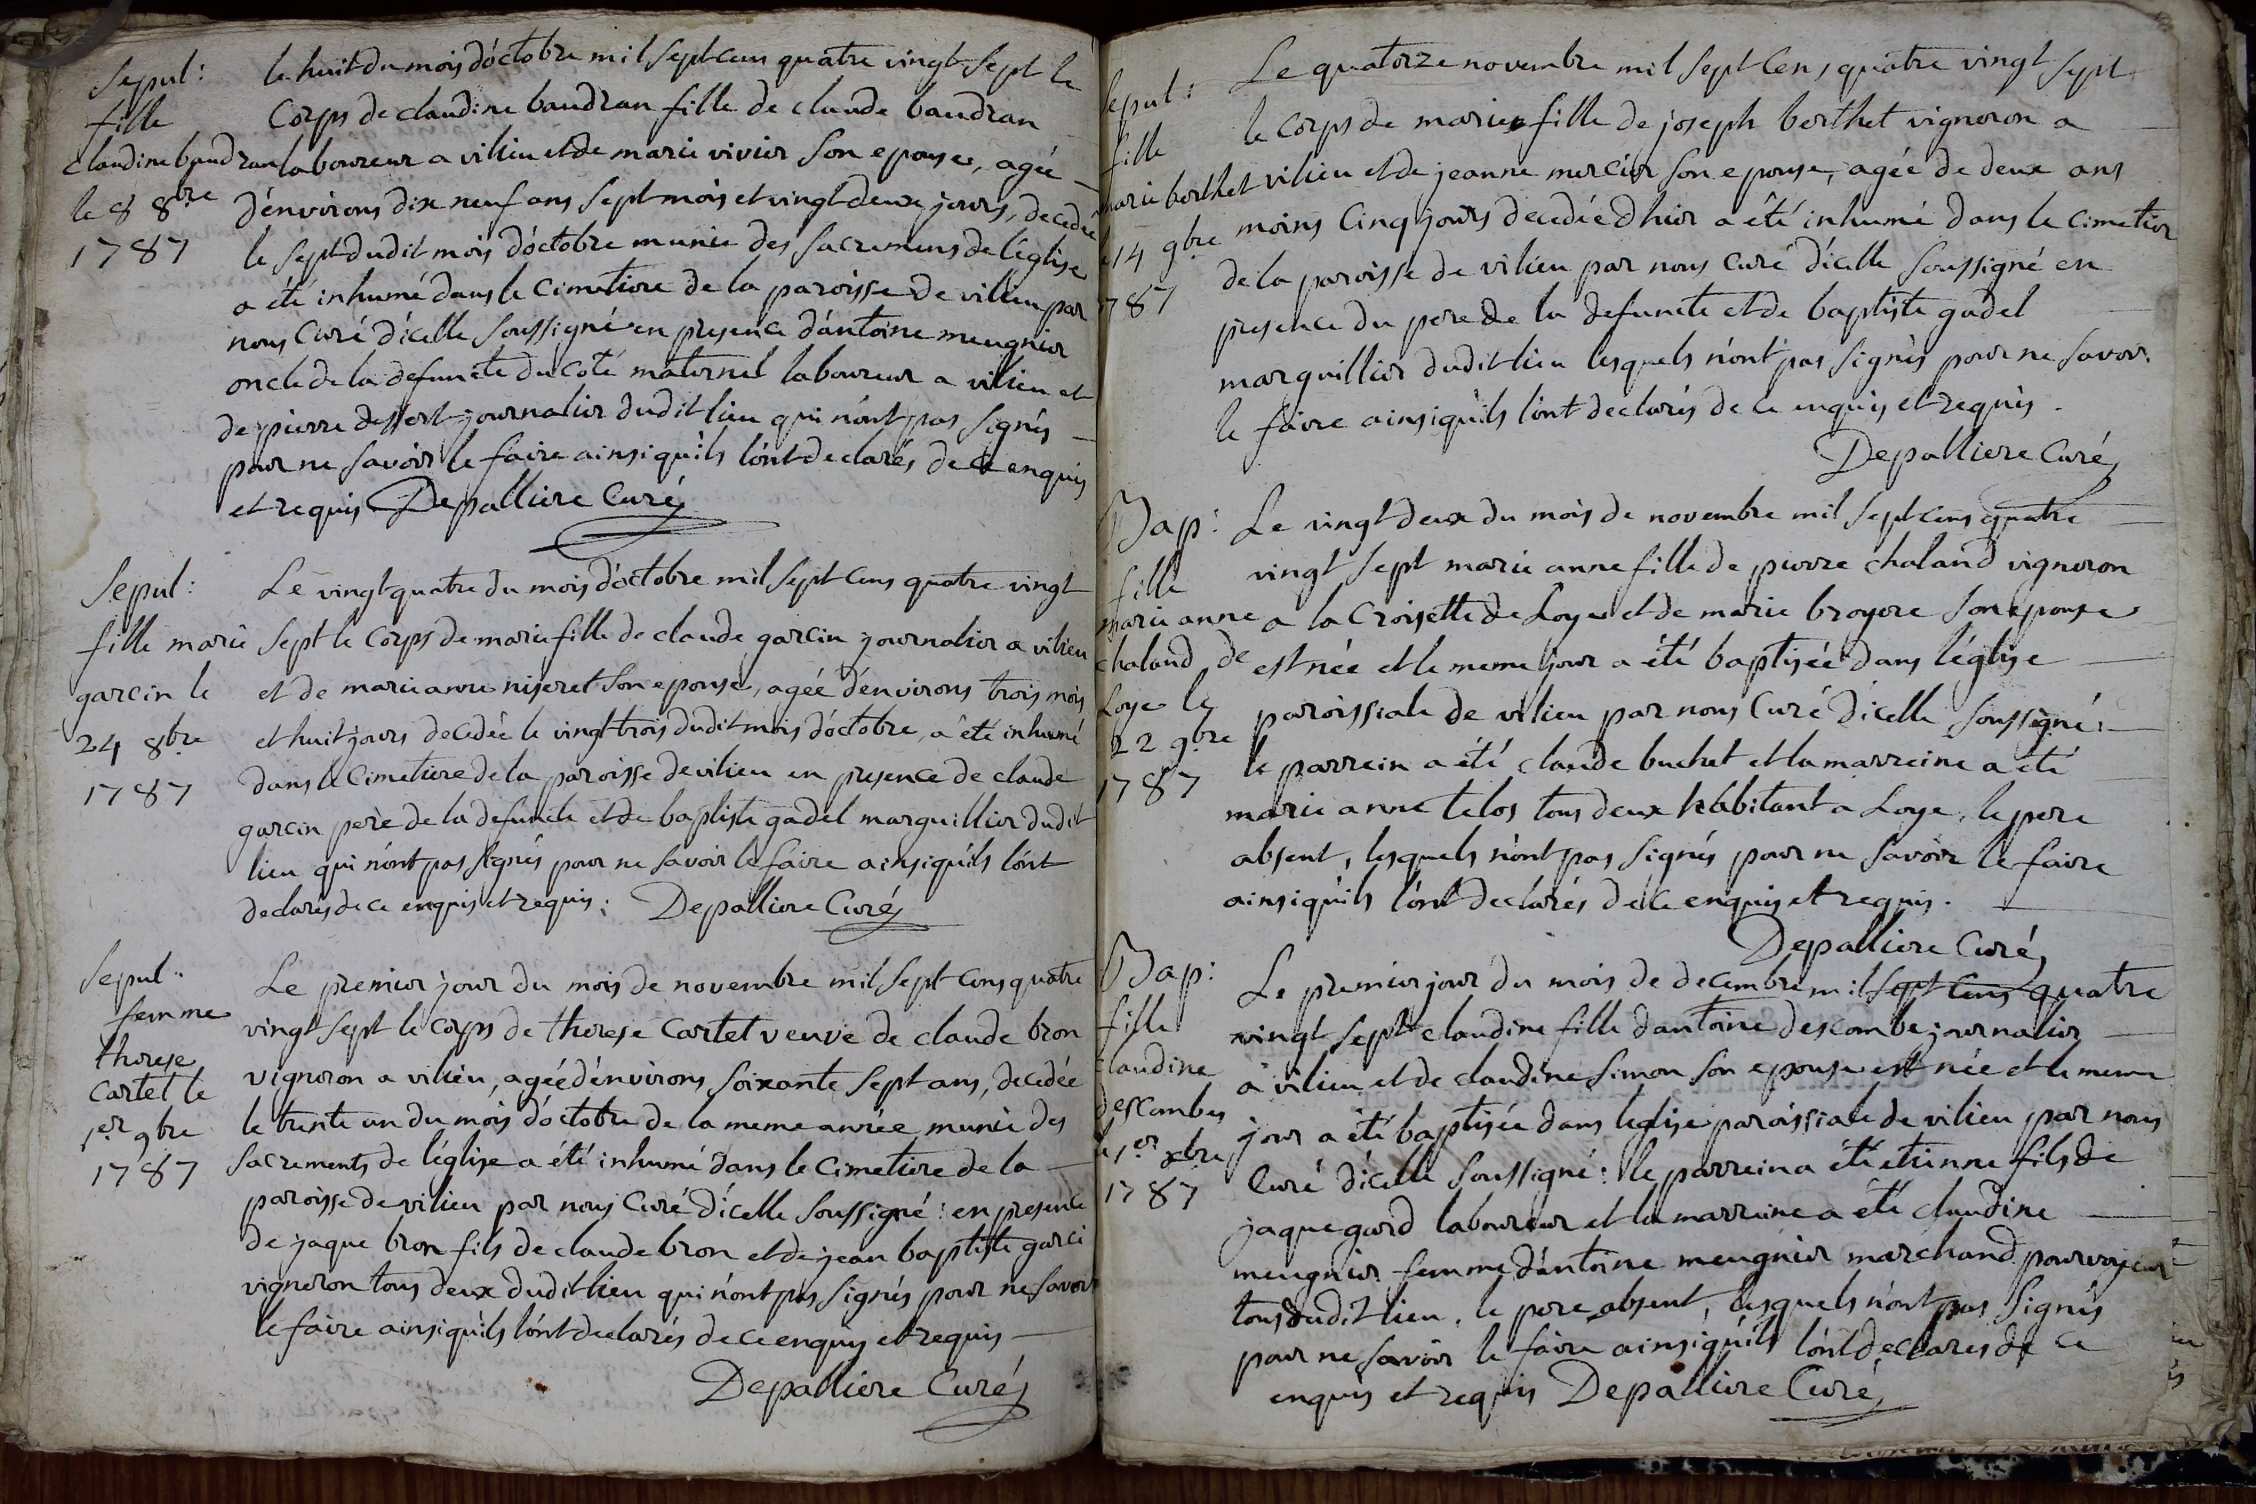 Sepul:
fille
claudine baudran
le 8 8bre
1787
le huit du mois d'octobre mil sept cens quatre vingt sept le
corps de claudine baudran fille de claude baudran
laboureur a vilieu et de marie vivier son epouse, agée
d'environs dix neuf ans sept mois et vingt deux jours, decedée
le sept dudit mois d'octobre munie des sacremens de l'église
a été inhumé dans le cimetiere de la paroisse de vilieu par
nous curé d'icelle soussigné en presence d'antoine meugnier
oncle de la defuncte du coté maternel laboureur a vilieu et
de pierre dessert journalier dudit lieu qui n'ont pas signés
pour ne savoir le faire ainsi qu'ils l'ont declarés de ce enquis
et requis Depalliere Curé
Sepul:
fille marie
garcin le
24 8bre
1787
Le vingt quatre du mois d'octobre mil sept cens quatre vingt
sept le corps de marie fille de claude garcin journalier a vilieu
et de marie anne niseret son epouse, agée d'environs trois mois
et huit jours decedée le vingt trois dudit mois d'octobre, a été inhumé
dans le cimetiere de la paroisse de vilieu en presence de claude
garcin père de la defuncte et de baptiste gadel marguillier dudit
lieu qui n'ont pas signés pour ne savoir le faire ainsi qu'ils l'ont
declarés de ce enquis et requis; Depalliere Curé
Sepul:
femme
therese
Cartet le
1er 9bre
1787
Le premier jour du mois de novembre mil sept cens quatre
vingt sept le corps de therese Cartet veuve de claude bron
vigneron a vilieu, agée d'environs soixante sept ans, decedée
le trente un du mois d'octobre de la meme année munie des
sacrements de l'église a été inhumé dans le cimetiere de la
paroisse de vilieu par nous Curé d'icelle soussigné: en presence
de jaque bron fils de claude bron et de jean baptiste garci
vigneron tous deux dudit lieu qui n'ont pas signés pour ne savoir
le faire ainsi qu'ils l'ont declarés de ce enquis et requis
Depalliere Curé
Sepul:
fille
marie berthet
le 14 9bre
1787
Le quatorze novembre mil sept cens quatre vingt sept
le corps de marie fille de joseph berthet vigneron a
vilieu et de jeanne mercier son epouse, agée de deux ans
moins cinq jours decedée d'hier a été inhumé dans le cimetier
de la paroisse de vilieu par nous curé d'icelle soussigné en
presence du pere de la defuncte et de baptiste gadel
marguillier dudit lieu lesquels n'ont pas signés pour ne savoir
le faire ainsi qu'ils l'ont declarés de ce enquis et requis.
Depalliere Curé
Bap:
fille
marie anne
chaland de
Loye le
22 9bre
1787
Le vingt deux du mois de novembre mil sept cens quatre
vingt sept marie anne fille de pierre chaland vigneron
a la Croisette de Loye et de marie broyere son epouse
est née et le meme jour a été baptisée dans l'église
paroissiale de vilieu par nous Curé d'icelle soussigné:
le parrein a été claude buchet et la marreine a été
marie anne telos tous deux habitant a Loye, le pere
absent, lesquels n'ont pas signés pour ne savoir le faire
ainsi qu'ils l'ont declarés de ce enquis et requis.
Depalliere Curé
Bap:
fille
claudine
descombes
le 1er xbre
1787
Le premier jour du mois de decembre mil sept cens quatre
vingt sept claudine fille d'antoine descombe journalier
a vilieu et de claudine simon son epouse est née et le meme
jour a été baptisée dans l'eglise paroissiale de vilieu par nous
Curé d'icelle soussigné: le parrein a été etienne fils de
jaque gard laboureur et la marreine a été claudine
meugnier femme d'antoine meugnier marchand pourvoyeur
tous dudit lieu, le pere absent, lesquels n'ont pas signés
pour ne savoir le faire ainsi qu'ils l'ont declarés de ce
enquis et requis Depalliere Curé